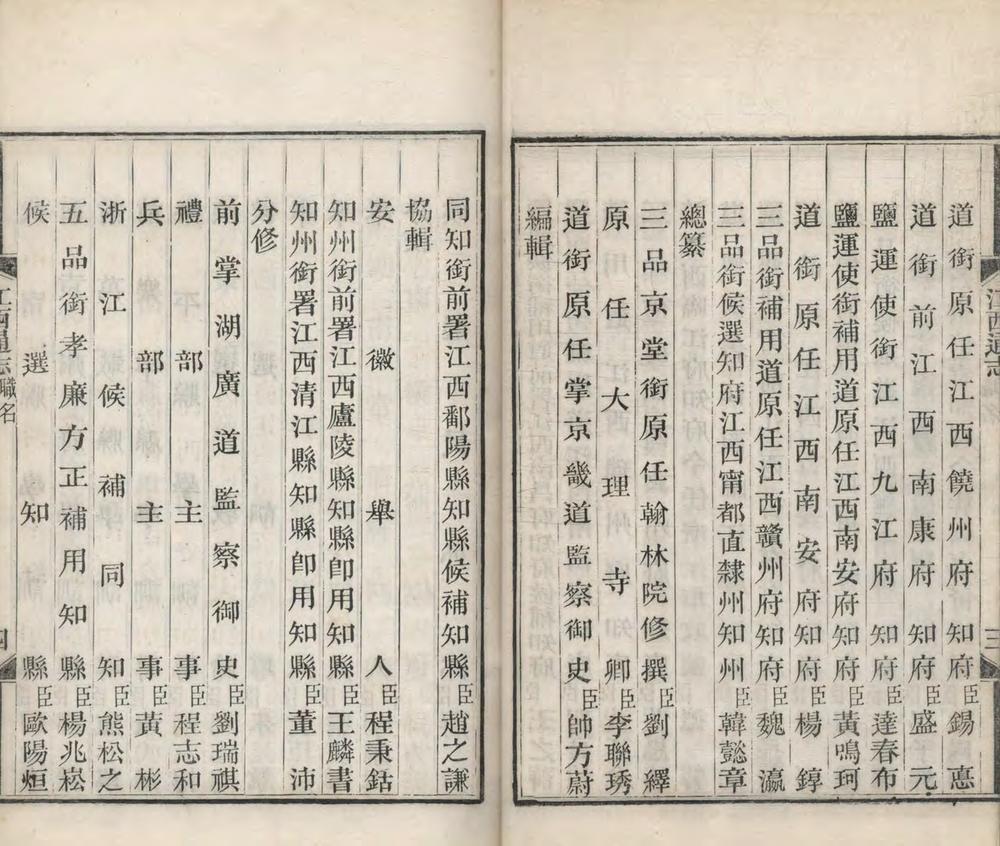 道銜原任江西饒州府知府臣錫惪
道銜前江西南康府知府臣盛元
鹽運使銜江西九江府知府臣達春布
鹽運使銜補用道原任江西南安府知府臣黃鳴珂
道銜原任江西南安府知府臣楊錞
三品銜補用道原任江西贛州府知府臣魏瀛
三品銜候選知府江西甯都直隸州知州臣韓懿章
總纂
三品京堂銜原任翰林院修撰臣劉繹
原任大理寺卿臣李聯琇
道銜原任掌京畿道監察御史臣帥方蔚
編輯
江西通志
三
同知銜前署江西鄱陽縣知縣候補知縣臣趙之謙
協輯
安徽舉人臣程秉銛
知州銜前署江西廬陵縣知縣卽用知縣臣王麟書
知州銜署江西清江縣知縣卽用知縣臣董沛
分修
前掌湖廣道監察御史臣劉瑞祺
禮部主事臣程志和
兵部主事臣黃彬
浙江候補同知臣熊松之
五品銜孝廉方正補用知縣臣楊兆崧
候選知縣臣歐陽烜
江西通志職名
四